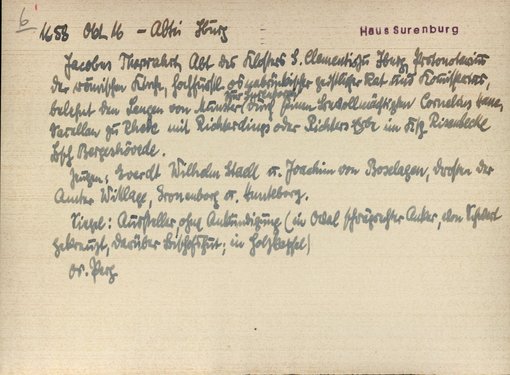 6
1658 Okt 16 – Abtei Iburg
Haus Surenburg
Jacobus Thorwarth Abt des Klosters S. Clementis zu Iburg, Protonotarius
der römischen Kirche, hochfürstl. osnabrückischer geistlicher Rat und Kommissar,
belehnt den von Münster zur Surenburg durch seinen Bevollmächtigten Cornelius
zu Rheine mit Richterdings oder Richters Erbe im Ksp. Riesenbeck
Bsch. Bergeshövede.
Zeugen: Everdt Wilhelm Stael u. Joachim von Boeselagen, Drosten der
Ämter Wittlage, Gronenborg u. Hunteborg.
Siegel: Aussteller, ohne Ankündigung (in Oval schrägrechter Anker, von Schwert
gekreuzt, darüber Bischofshut; in Holzkapsel)
Or. Perg.